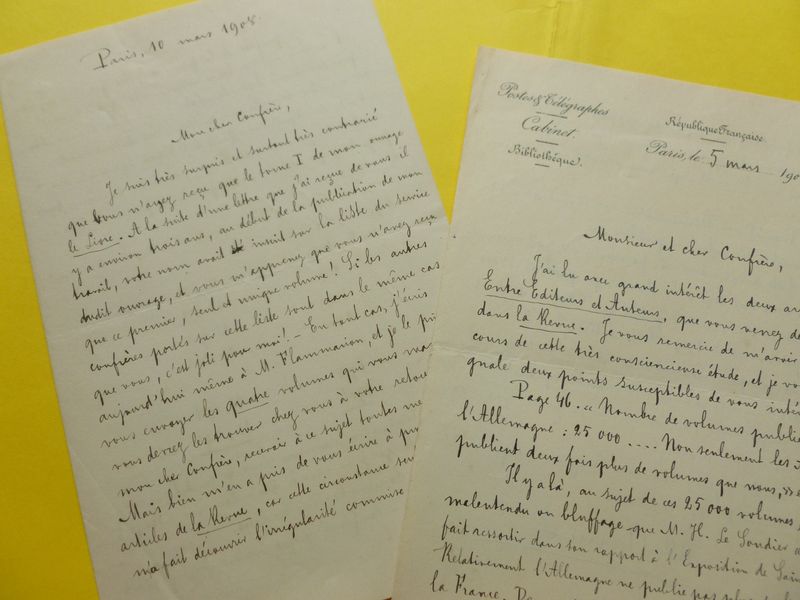 Paris, 10 mars 1908.
Mon cher Confrère,
Je suis très surpris et surtout très contrarié
que vous n'ayez reçu que le tome I de mon ouvrage
le Livre. A la suite d'une lettre que j'ai reçue de vous il
y a environ trois ans, au début de la publication de mon
travail, votre nom avait été inscrit sur la liste du service
dudit ouvrage, et vous m'apprenez que vous n'avez reçu
que ce premier, seul et unique volume! Si les autres
confrères portés sur cette liste sont dans le même cas
que vous, c'est joli pour moi! – En tout cas, j'écris
aujourd'hui même à M. Flammarion, et je le pri
vous envoyer les quatre volumes qui vous man
vous devrez les trouver chez vous à votre retour
mon cher Confrère, recevoir à ce sujet toutes me
Mais bien m'en a pris de vous écrire à pro
articles de la Revue, car cette circonstance seu
m'a fait découvrir l'irrégularité commise
Postes & Télégraphes
Cabinet.
Bibliothèque.
République Française
Paris, le 5 mars 190
Monsieur et cher Confrère,
J'ai lu avec grand intérêt les deux ar
Entre Editeurs et Auteurs, que vous venez de
dans la Revue. Je vous remercie de m'avoir
cours de cette très consciencieuse étude, et je vo
gnale deux points susceptibles de vous inté
Page 46. « Nombre de volumes publié
l'Allemagne : 25 000 .... Non seulement les
publient deux fois plus de volumes que nous, »
Il y a là, au sujet de ces 25 000 volumes
malentendu ou bluffage que M. H. Le Soudier
fait ressortir dans son rapport à l'Exposition de Sain
Relativement l'Allemagne ne publie pas plus
la France.